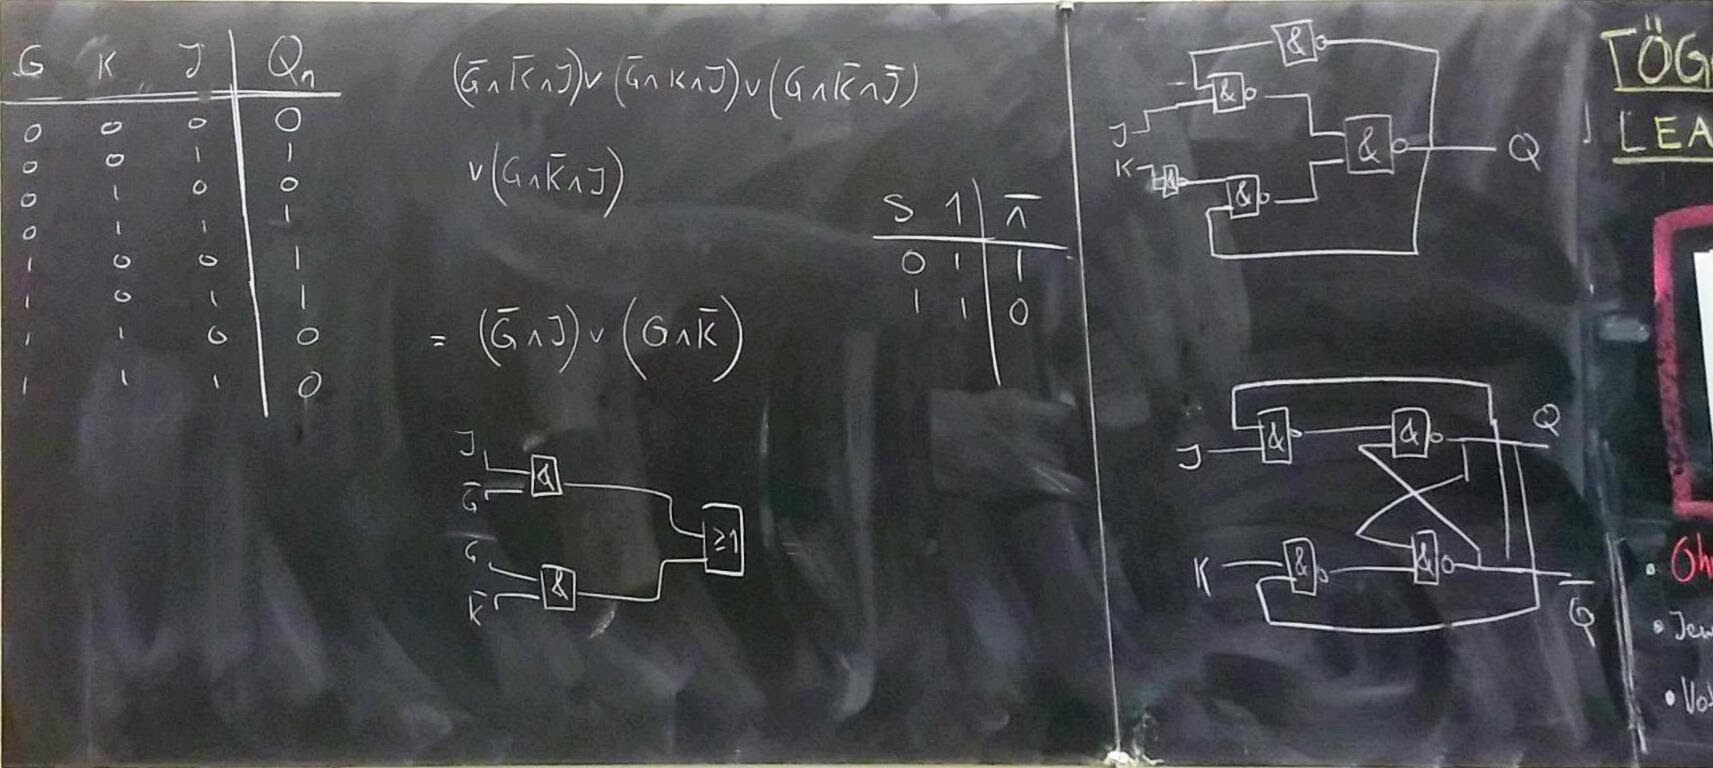 G K J Qₙ
0 0 0 0
0 0 1 1
0 1 0 0
0 1 1 1
1 0 0 1
1 0 1 1
1 1 0 0
1 1 1 0
(G̅∧K̅∧J)∨(G̅∧K∧J)∨(G∧K̅∧J̅)
∨(G∧K̅∧J)
= (G̅∧J)∨(G∧K̅)
J
G̅
&
G
K̅
&
≥1
S 1 ⊼
0 1 1
1 1 0
&
&
J
K
&
&
&
Q
J
&
&
Q
K
&
&
Q̅
TÖG
LEA
• Oh
• Jew
• Vo